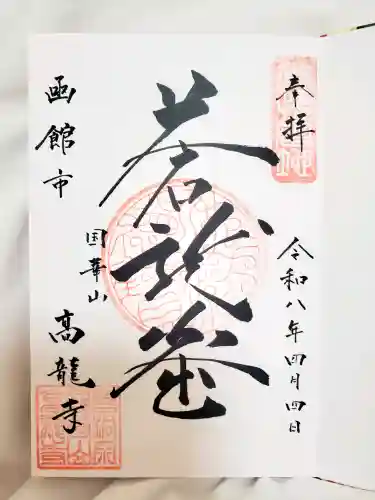 奉拝
令和八年四月四日
蒼龍窟
函館市
国華山
高龍寺